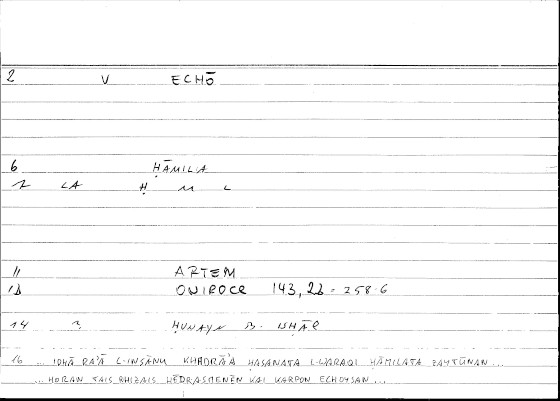 2 V ECHŌ
6 ḤĀMILIA
LA Ḥ M L
11 ARTEM
12 ONIROCR 143, 22 = 258.6
14 ḤUNAYN B. ISḤĀQ
16 ... IDHĀ RA'Ā L-INSĀNU KHADRĀ'A ḤASANATA L-WARAQI ḤĀMILATA ZAYTŪNAN ...
... HORAN TAIS RHIZAIS HĒDRASMENĒN KAI KARPON ECHOYSAN ...